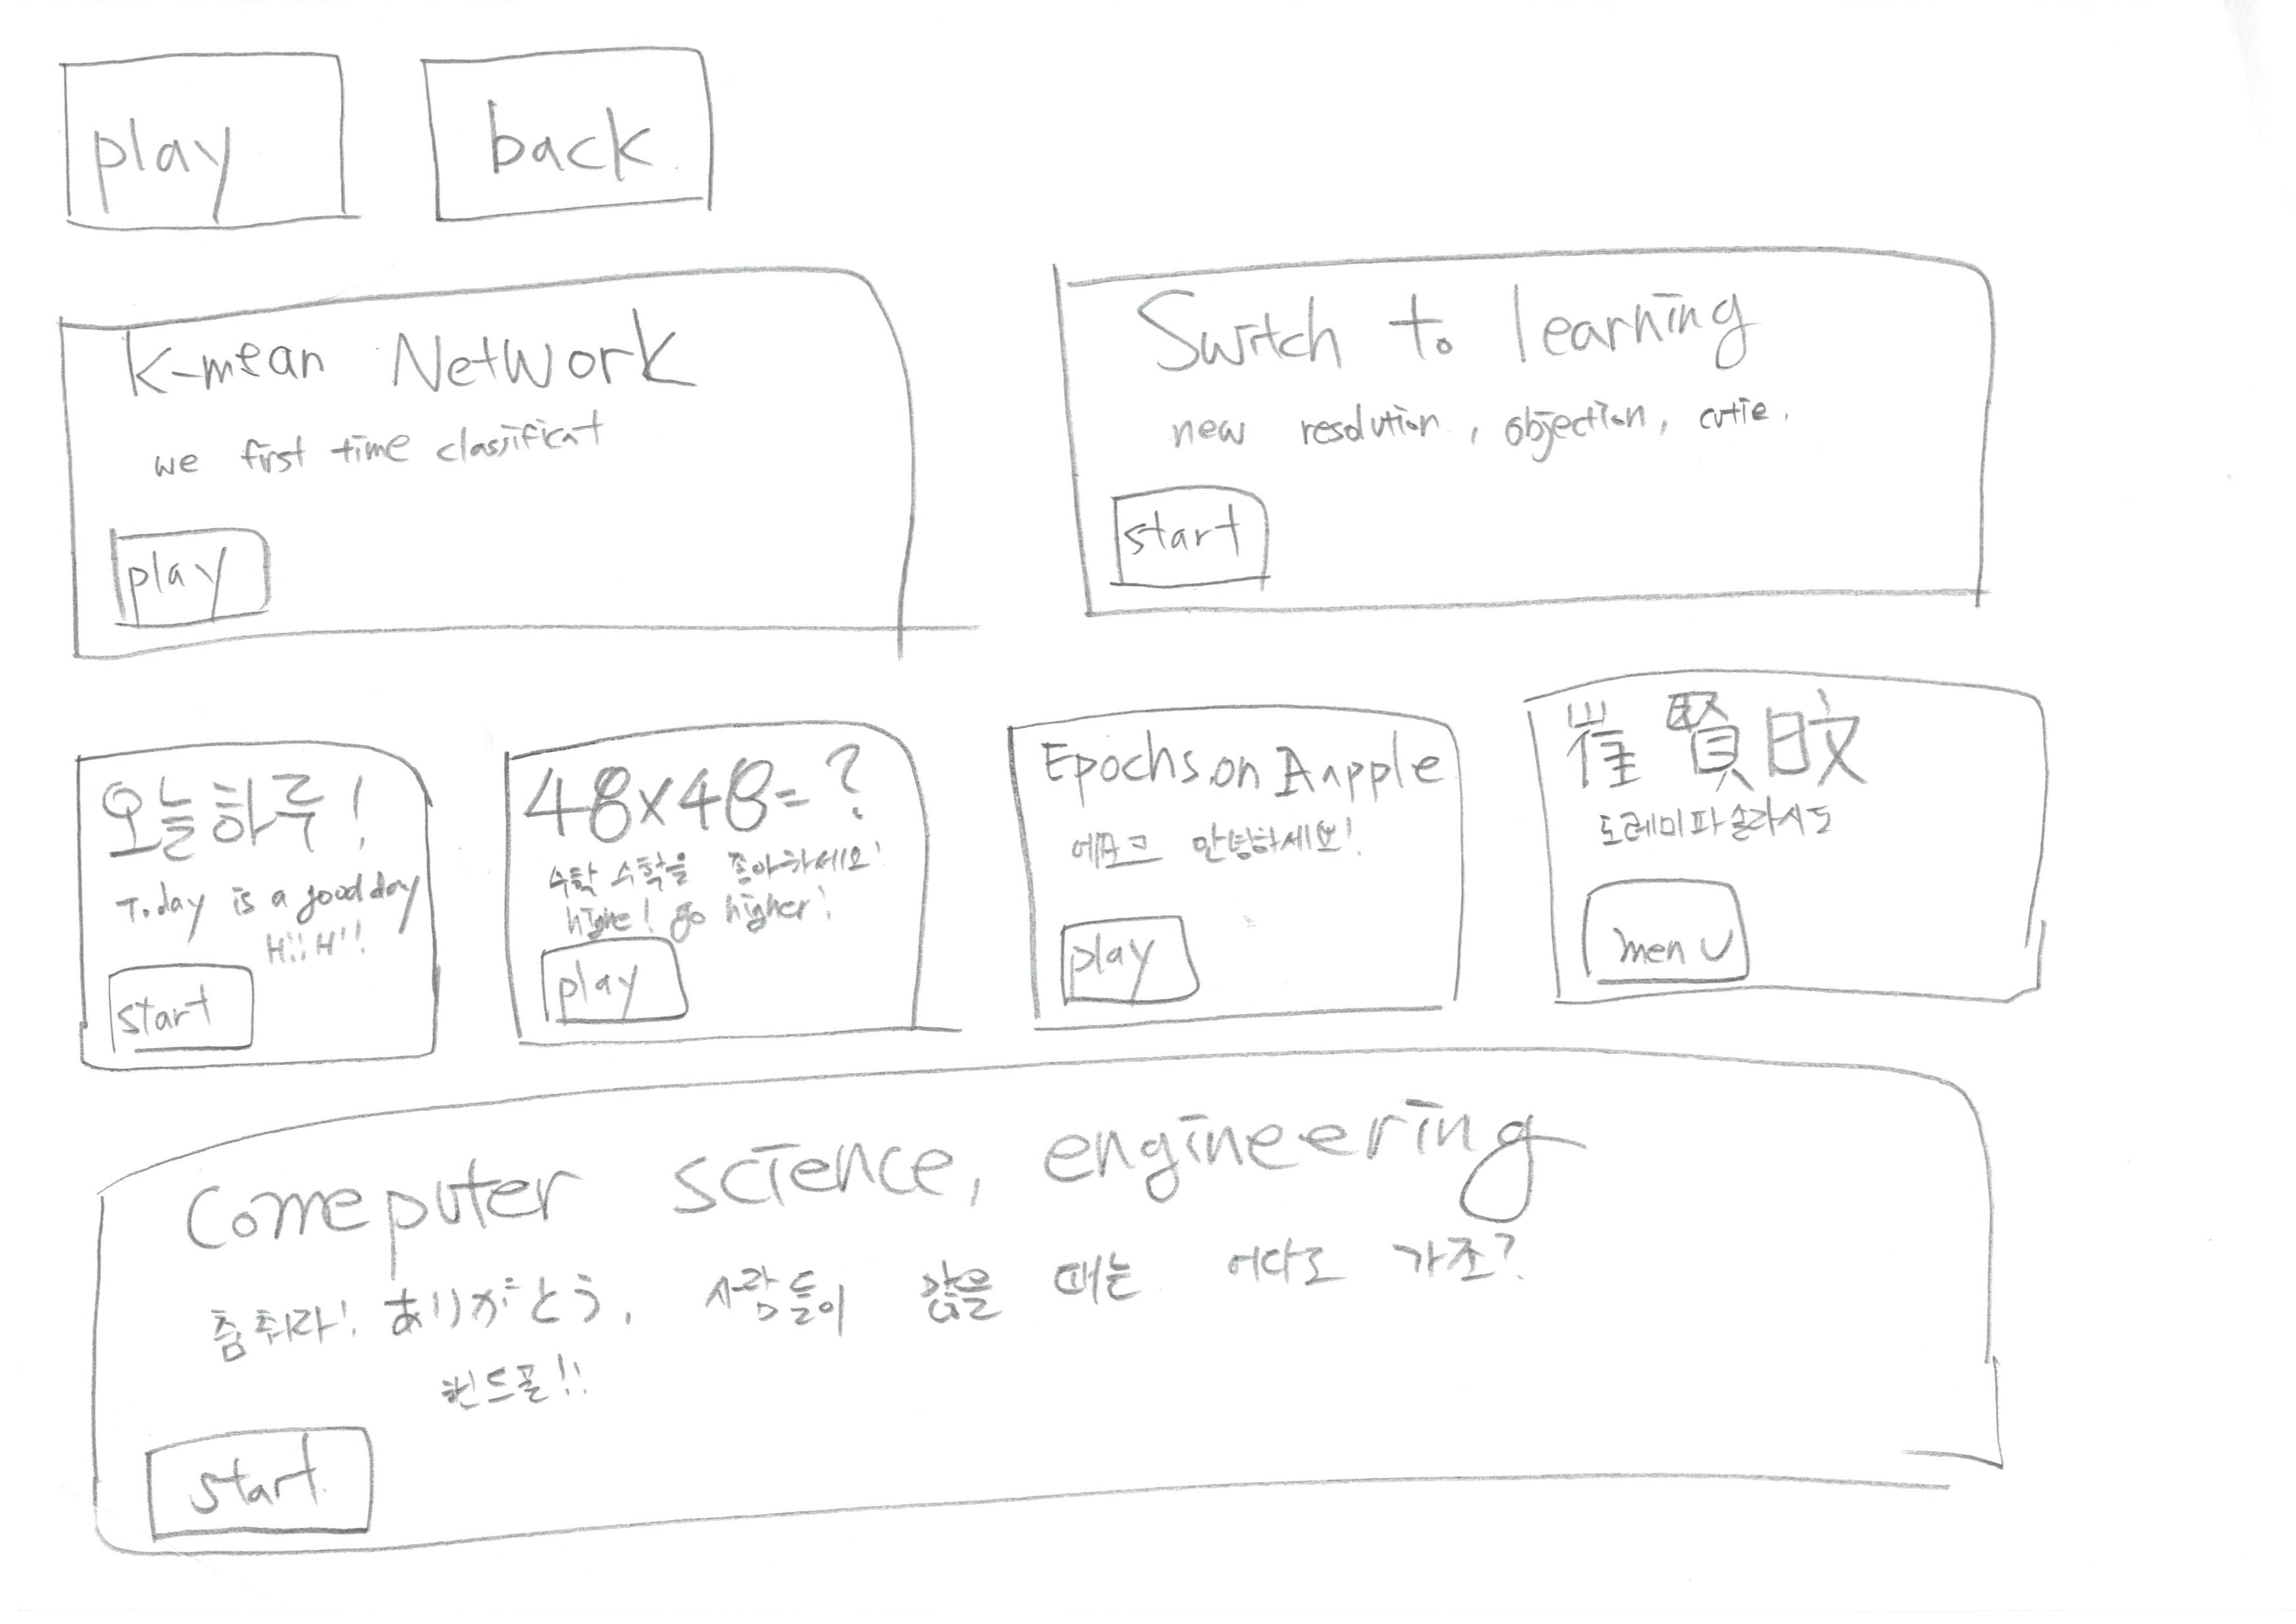 play
back
K-mean Network
we first time classificat
play
Switch to learning
new resolution, objection, cutie.
start
오늘하루!
Today is a good day
Hi! Hi!!
start
48x48=?
수학 수학을 좋아하세요!
highe! go higher!
play
Epochs on Aapple
에포크 안녕하세요!
play
崔賢旼
도레미파솔라시도
menu
Comeputer science, engineering
춤춰라! ありがとう, 사람들이 많을 때는 어다로 가죠?
핸드폰!!
start